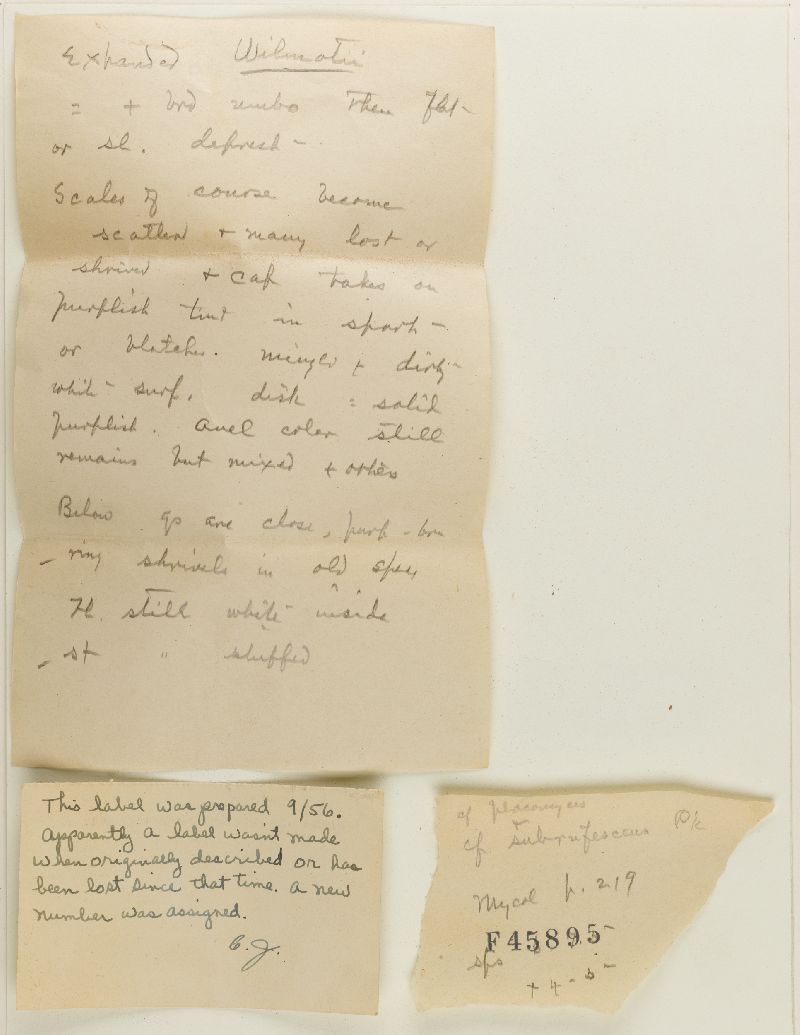 Expanded Wilmotii
= + brd umbo then flat-
or sl. depresh -
Scales of course become
scatterd + many lost or
shrivd + cap takes on
purplish tint in
or blotches. mingld + dirty-
white surf. disk = solid
purplish. Avel color still
remains but mixed + others
Below gs are close, purp-brn
- ring shrivels in old
Fl. still white inside
- st " stuffed
This label was prepared 9/56.
Apparently a label wasn't made
when originally described or has
been lost since that time. A new
number was assigned.
C.J.
cf placomyces
cf subrufescens Pk
Mycol p. 219
F45895
sps
+ 4 - 5 -